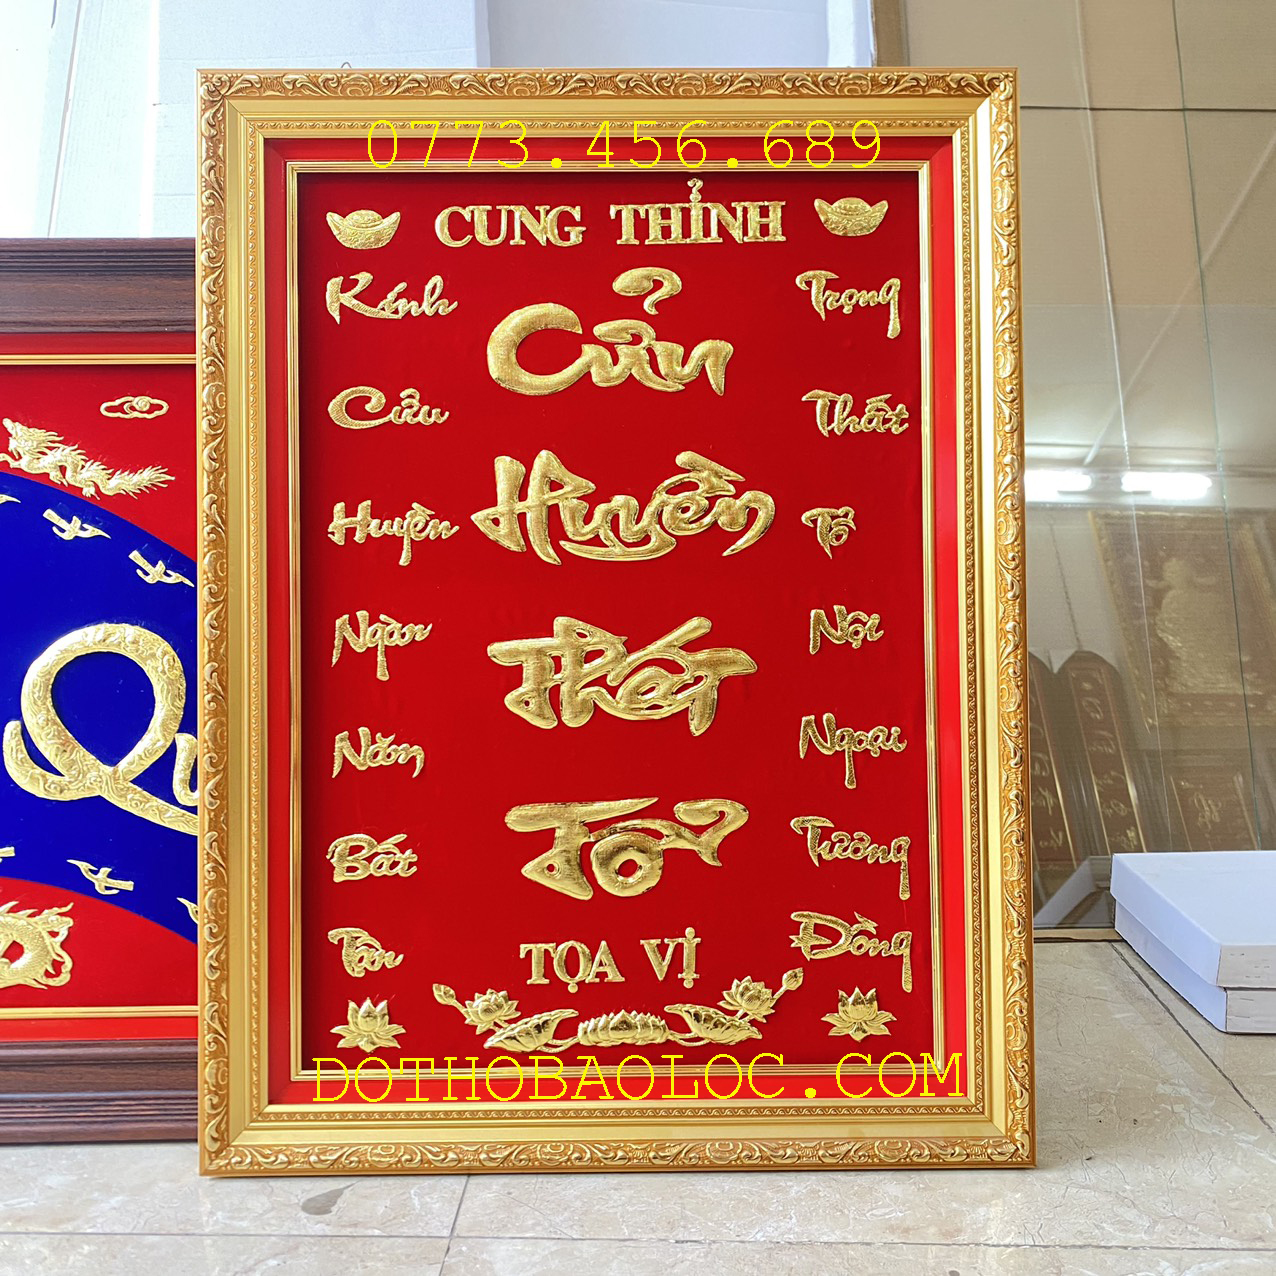 0773.456.689
CUNG THỈNH
Kính
Cửu
Huyền
Ngàn
Năm
Bát
Tân
Cửu
Huyền
Thất
Tổ
TỌA VỊ
Trọng
Thất
Tổ
Nội
Ngoại
Tương
Đồng
DOTHOBAOLOC.COM
Qu